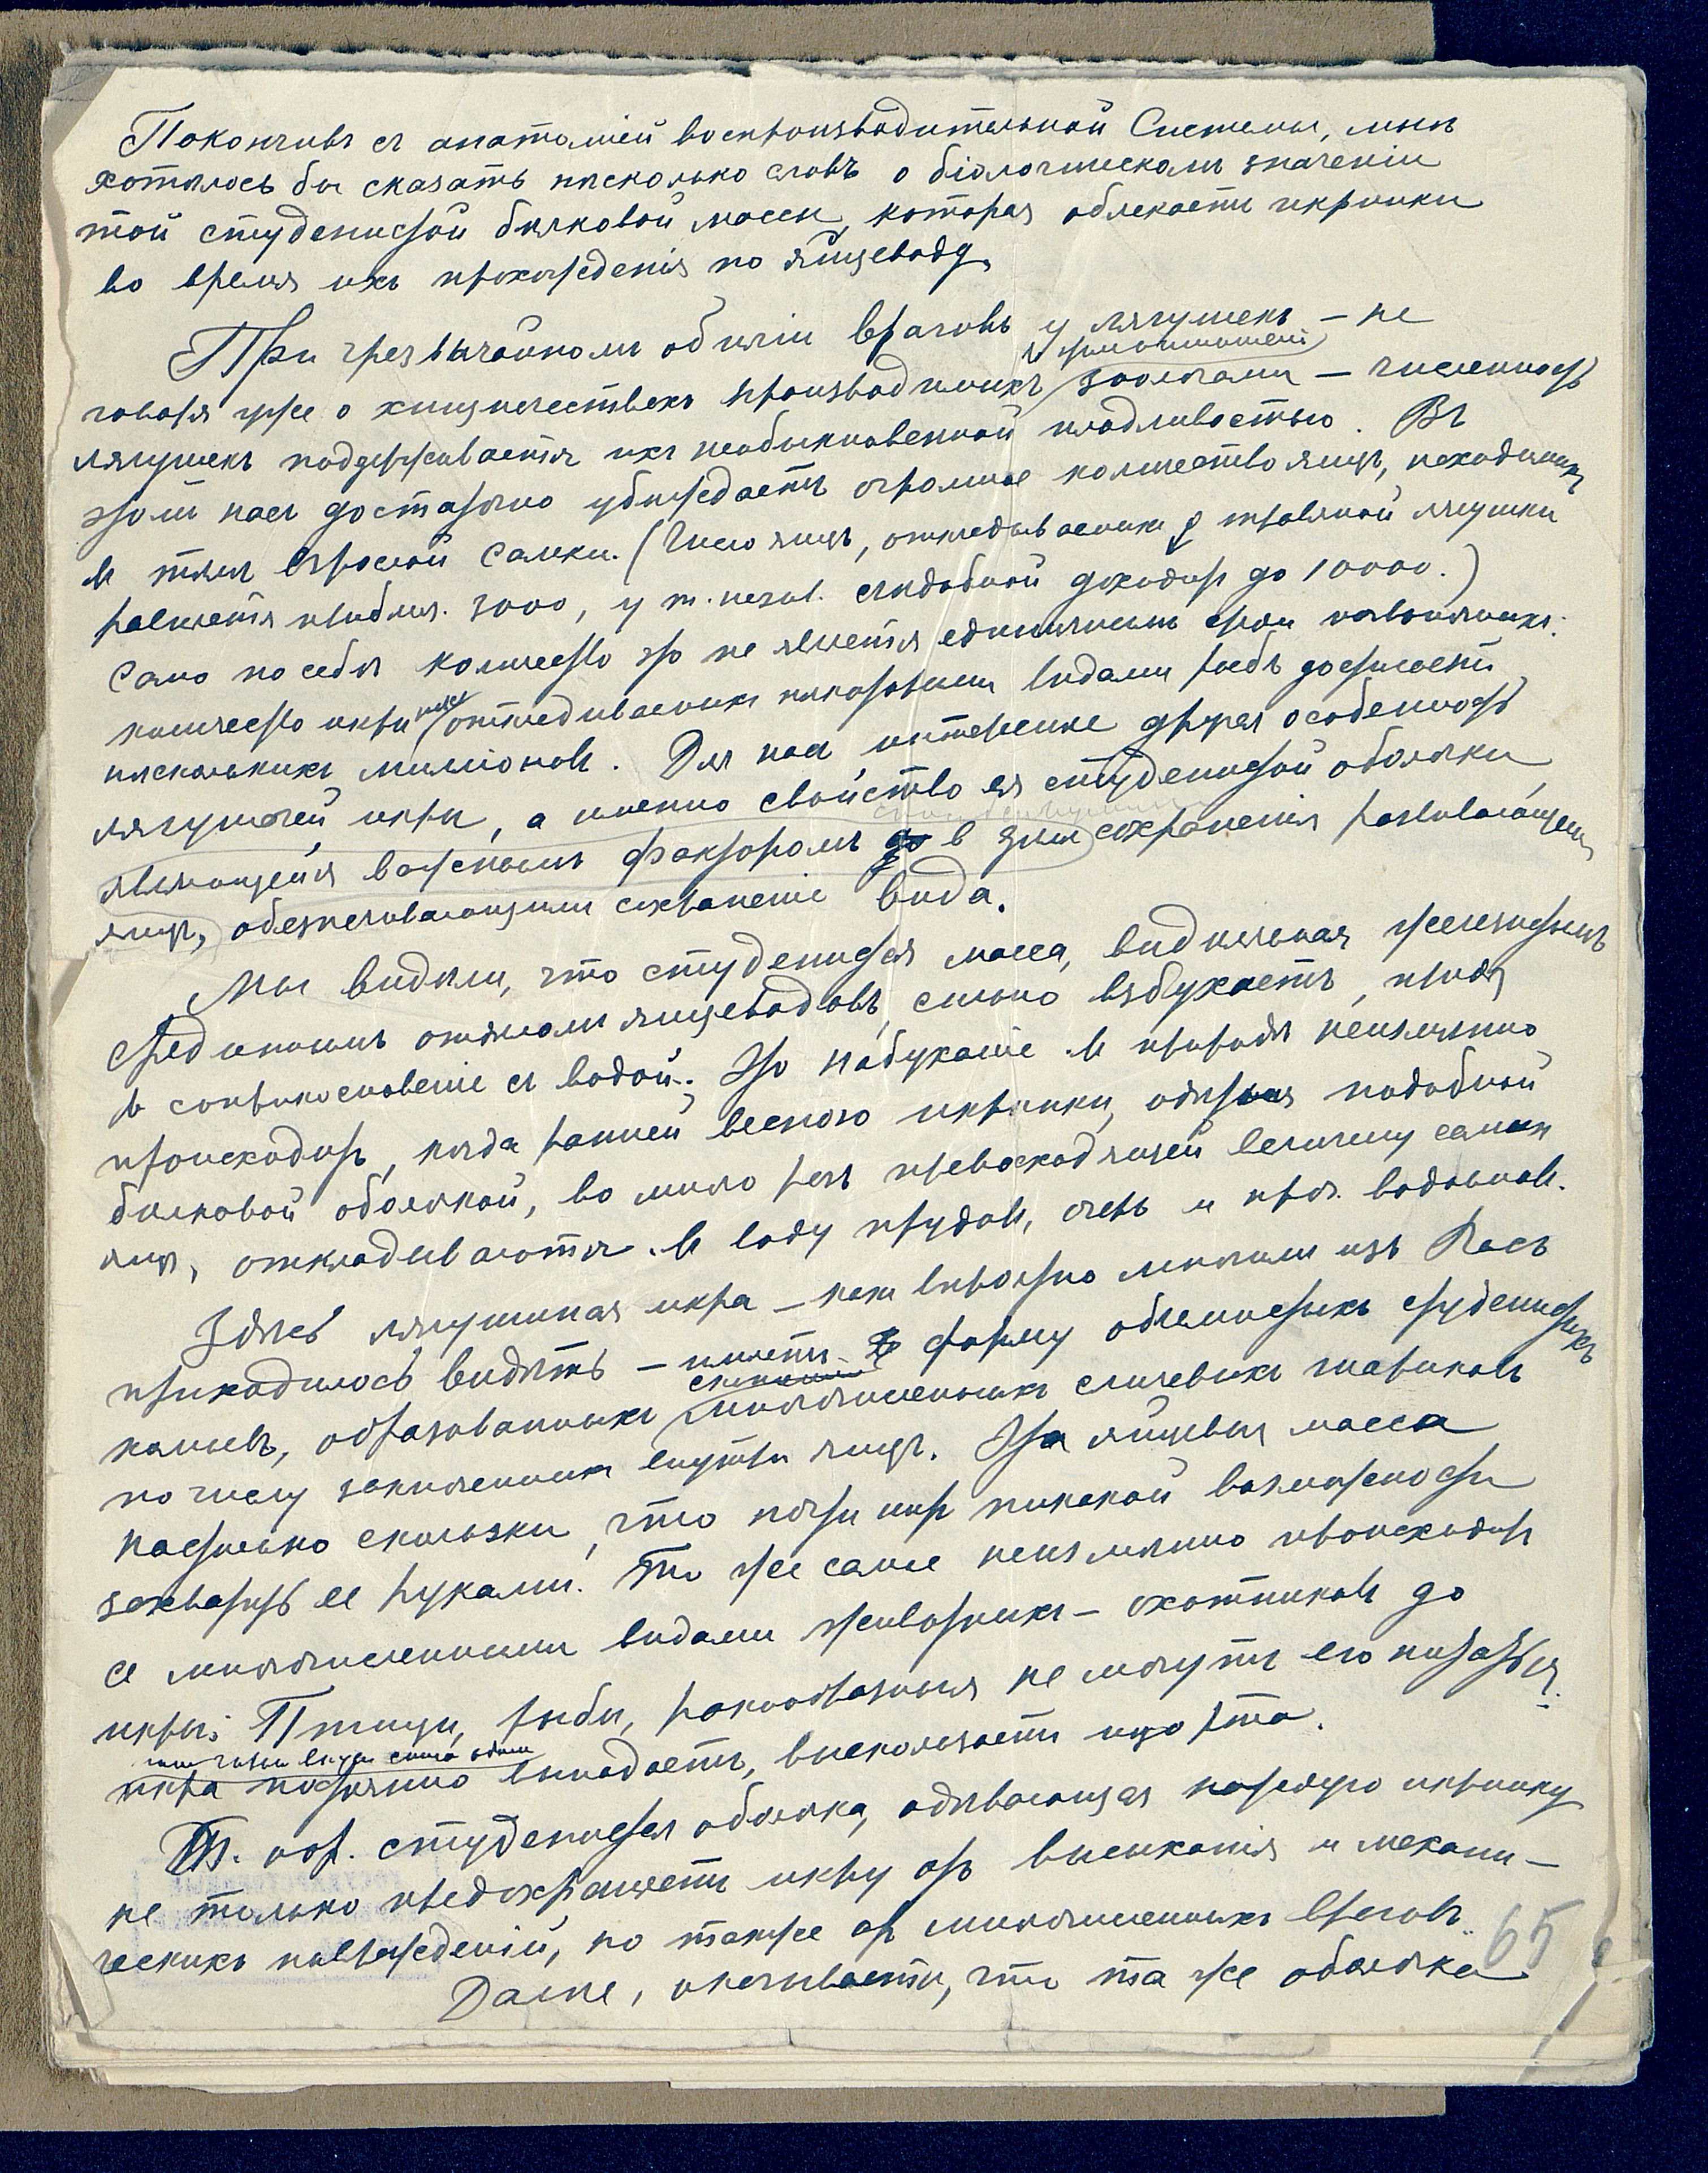 Покончивъ съ анатоміей воспроизводительной Системы, мнѣ
хотѣлось бы сказать нѣсколько словъ о біологическомъ значеніи
той студенистой бѣлковой массы, которая облекаетъ икринки
во время ихъ прохожденія по яйцеводу.
При чрезвычайномъ обиліи враговъ у лягушекъ – не
говоря уже о хищничествахъ производимыхъ зоологами – численность
лягушекъ поддерживается ихъ необыкновенной плодливостью. Въ
этомъ насъ достаточно убѣждаетъ огромное количество яицъ, находимыхъ
въ тѣлѣ взрослой самки. (Число яицъ, откладываемыхъ у травяной лягушки
равняется приблиз. 3000, у т. назыв. съѣдобной доходитъ до 10000.)
Само по себѣ количество это не является единичнымъ среди позвоночныхъ:
количество икринокъ откладываемыхъ нѣкоторыми видами рыбъ достигаетъ
нѣсколькихъ милліоновъ. Для насъ интереснѣе другая особенность
лягушачей икры, а именно свойство ея студенистой оболочки,
являющейся важнымъ факторомъ в сохраненія развивающихся
яицъ, обезпечивающимъ сохраненіе вида.
Мы видѣли, что студенистая масса, выдѣляемая железистымъ
срединнымъ отдѣломъ яйцеводовъ, сильно взбухаетъ, придя
въ соприкосновеніе съ водой. Это набуханіе въ природѣ неизмѣнно
происходитъ, когда ранней весною икринки, одѣтыя подобной
бѣлковой оболочкой, во много разъ превосходящей величину самихъ
яицъ, откладываются въ воду прудовъ, озеръ и проч. водоемовъ.
Здѣсь лягушиная икра – какъ вѣроятно многимъ изъ Васъ
приходилось видѣть – имѣетъ форму объемистыхъ студенистыхъ
комьевъ, образованныхъ многочисленныхъ слизевыхъ шариковъ
по числу заключенныхъ внутри яицъ. Эта яйцевая масса
настолько скользка, что почти нѣтъ никакой возможности
захватить ее руками. То же самое неизмѣнно происходитъ
съ многочисленными видами животныхъ – охотниковъ до
икры: Птицы, рыбы, ракообразныя не могутъ его питаться.
икра постоянно выпадаетъ, выскользаетъ изо рта.
Т. обр. студенистая оболочка, одѣвающая каждую икринку
не только предохраняетъ икру отъ высыханія и механи-
ческихъ поврежденій, но также отъ многочисленныхъ враговъ.
Далѣе, оказывается, что та же оболочка
65